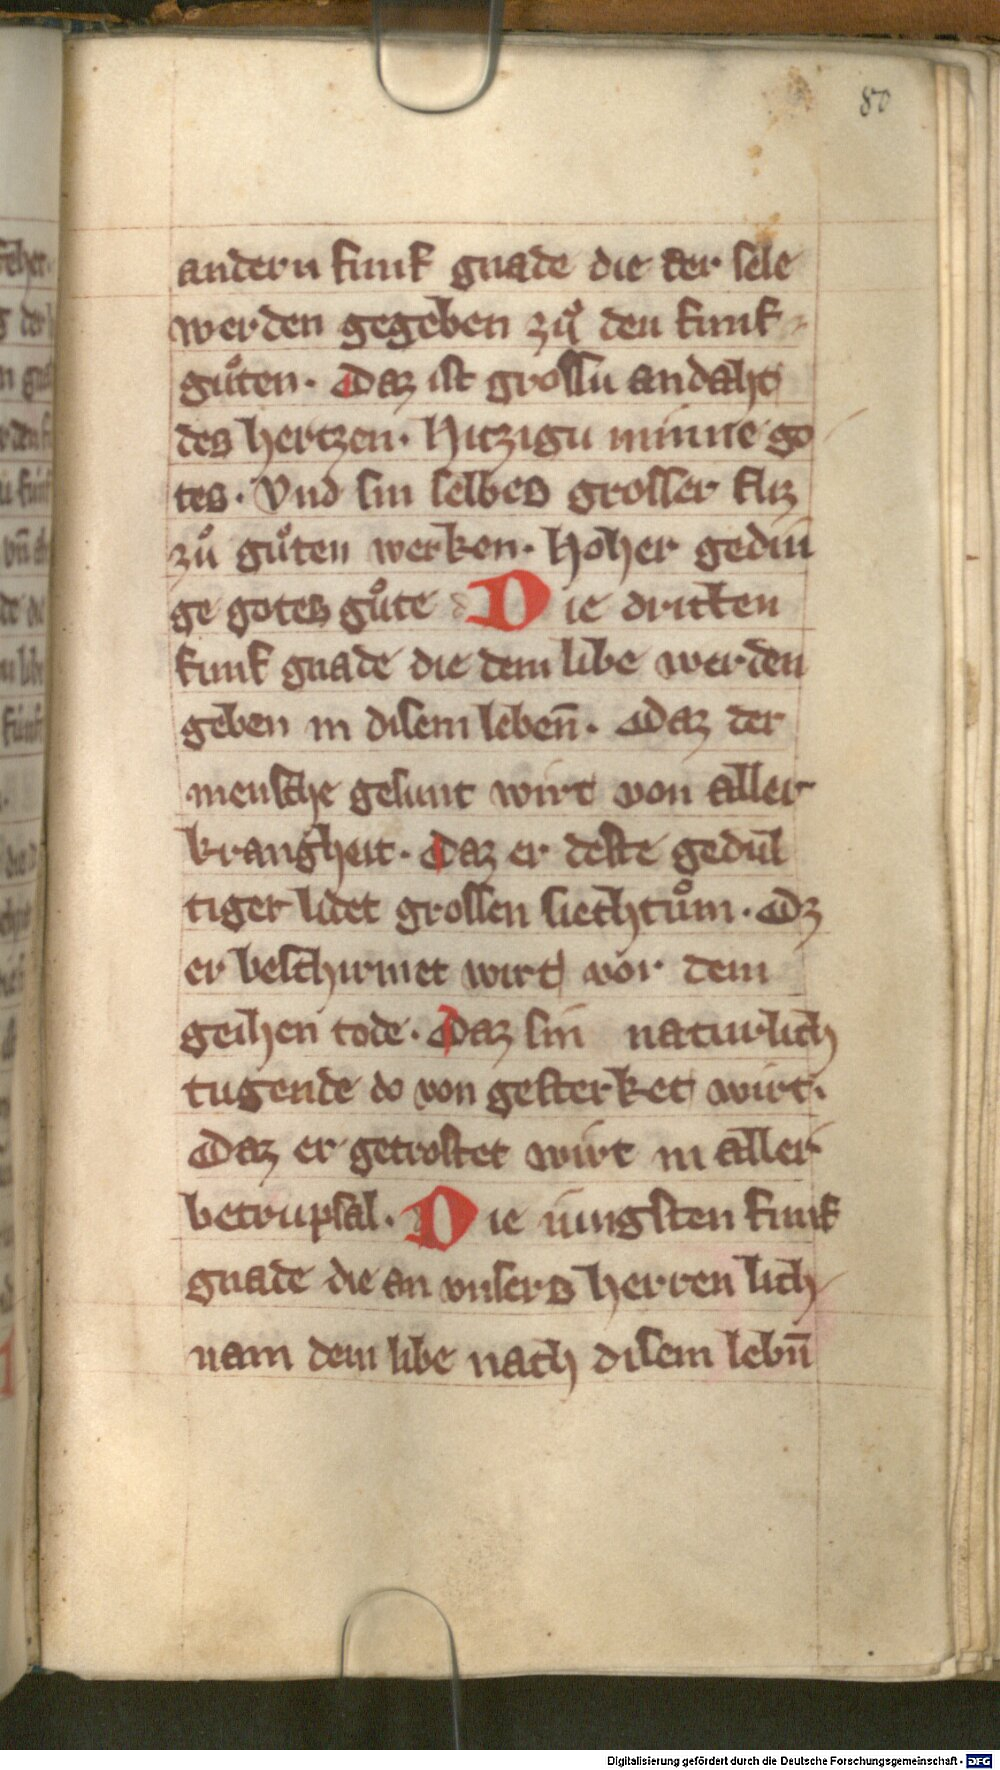 80
andern funf gnade die der sele
werden gegeben zuͦ den funf
guͦten. Daz ist grossu andaht
des hertzen. Hitzigu minne go
tes. Vnd sin selbes grosser fliz
zuͦ guͦten werken. Hoher gedin
ge gotes guͦte Die dritten
funf gnade die dem libe werden
geben in disem leben̄. Daz der
mensche gesunt wirt von aller
krangheit. Daz er deste gedul
tiger lidet grossen siechtuͦm. Dz
er beschirmet wirt vor dem
geihen tode. Daz sin naturlich
tugende do von gesterket wirt.
Daz er getrostet wirt in aller
betrupsal. Die iungsten funf
gnade die an vnsers herren lich
nam dem libe nach disem lebn̄
Digitalisierung gefördert durch die Deutsche Forschungsgemeinschaft - DFG